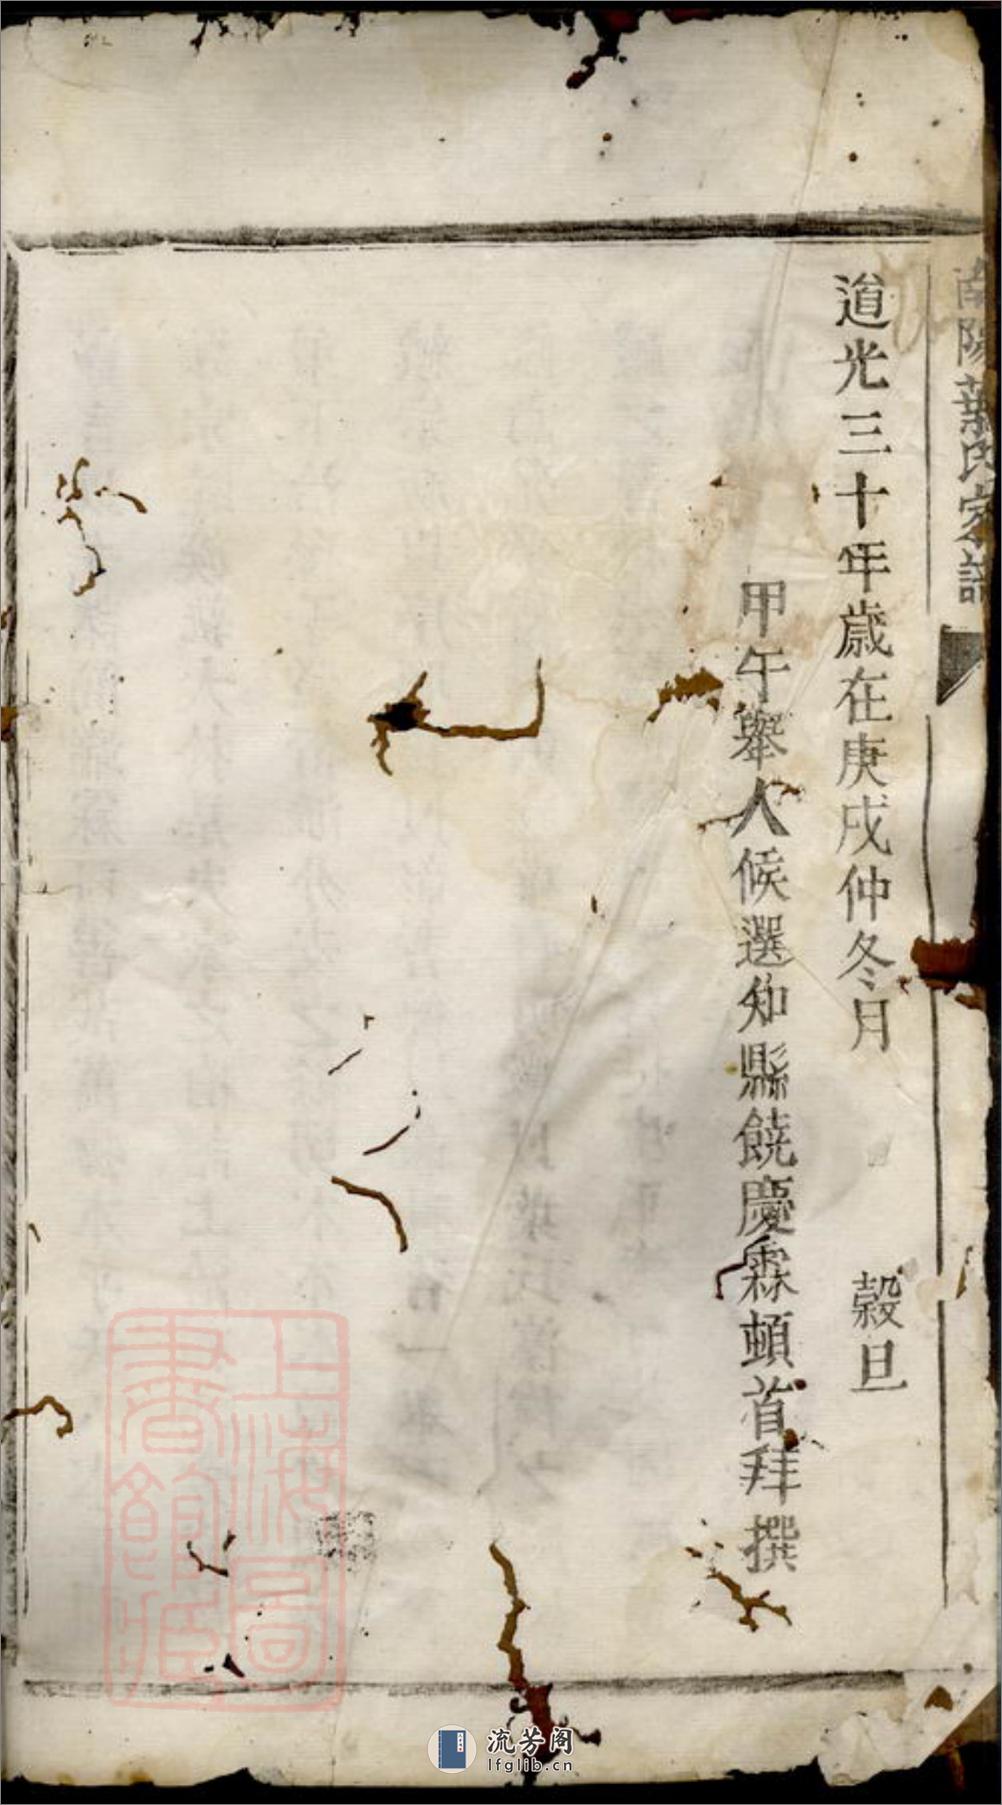 南陽葉氏宗譜
道光三十年歲在庚戌仲冬月 穀旦
甲午舉人候選知縣饒慶霖頓首拜撰
上海圖書館藏
流芳阁
lfglib.cn